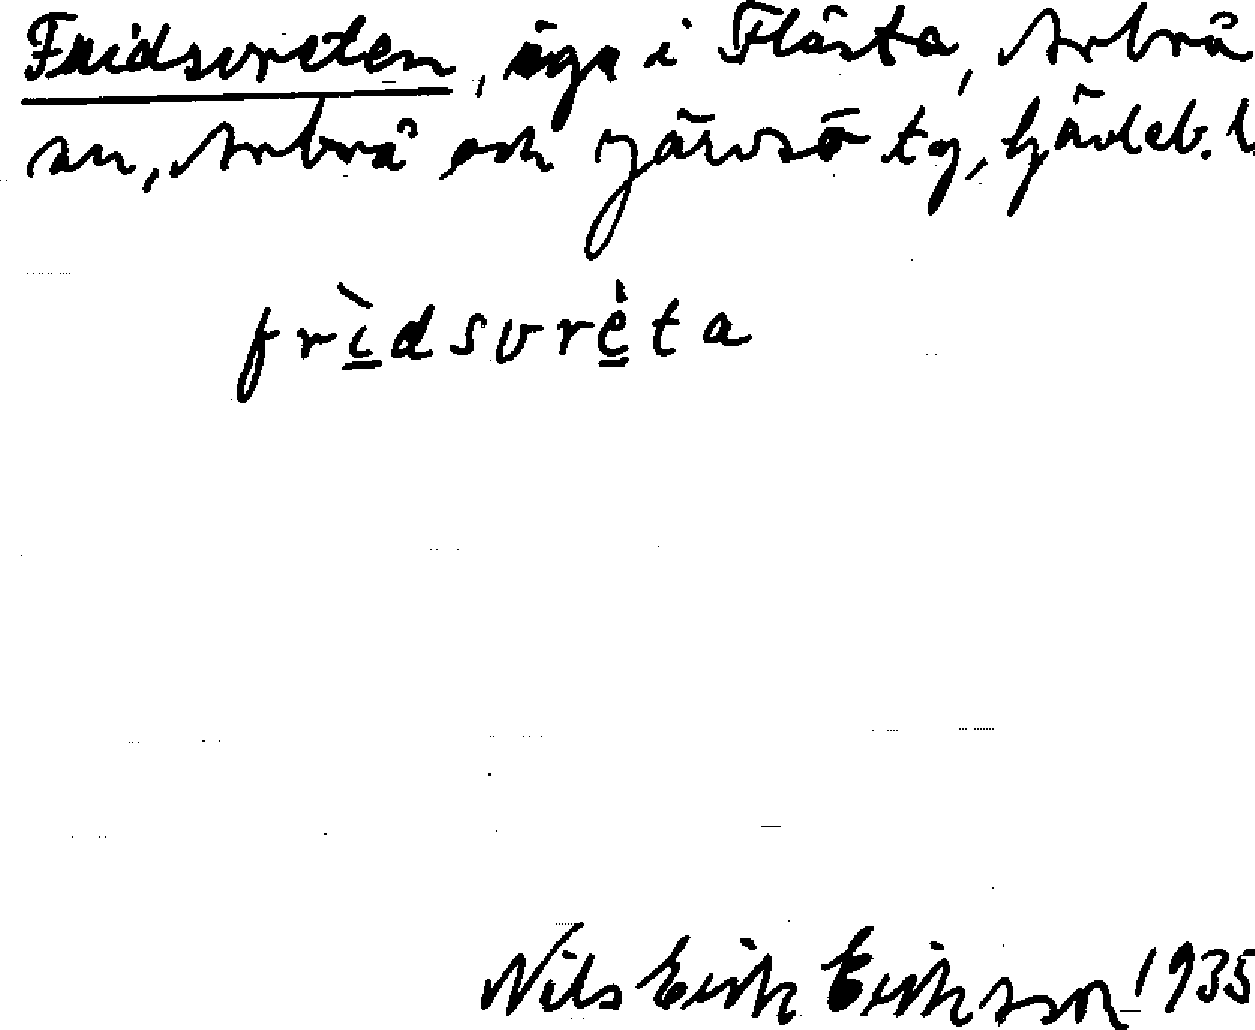 Fridsvreten, äga i Flästa, Arbrå
sn, Arbrå och Järvsö tg, Gävleb. l
frìdsvrèta
Nils Erik Eriksson 1935